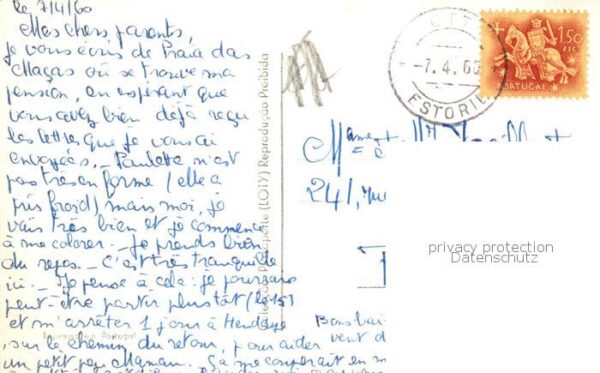 le 7/4/60
Mes chers parents,
je vous écris de Praia das
Maçãs où se trouve ma
pension, en espérant que
vous avez bien déjà reçu
les lettres que je vous ai
envoyées. _ Paulette n'est
pas très en forme (elle a
pris froid) mais moi, je
vais très bien et je commence
à me colorer. _ Je prends bien
du repos. _ C'est très tranquille
ici. _ Je pense à cela : je pourrais
peut-être partir plus tôt (le 15)
et m'arrêter 1 jour à Hendaye
, sur le chemin du retour, pour aider
un petit peu Maman. Ça me couperait en
Portugal
(LOTY) Reprodução Proibida
-7. 4. 60
ESTORIL
1$50
ESC.
PORTUGAL
24/,
privacy protection
Datenschutz
Bons bai
vent d